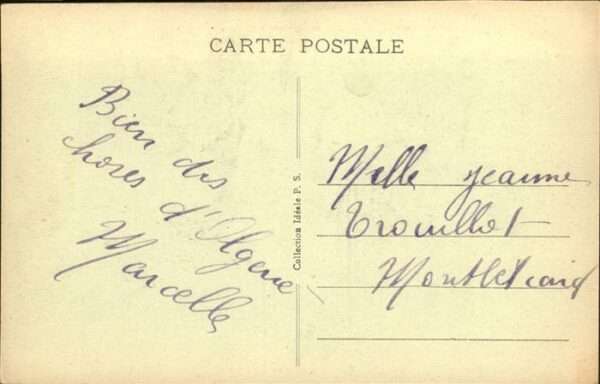 CARTE POSTALE
Bien des
choses d'Algérie
Marcelle
Collection Idéale P. S.
Melle Jeanne
Trouillot
Montbéliard